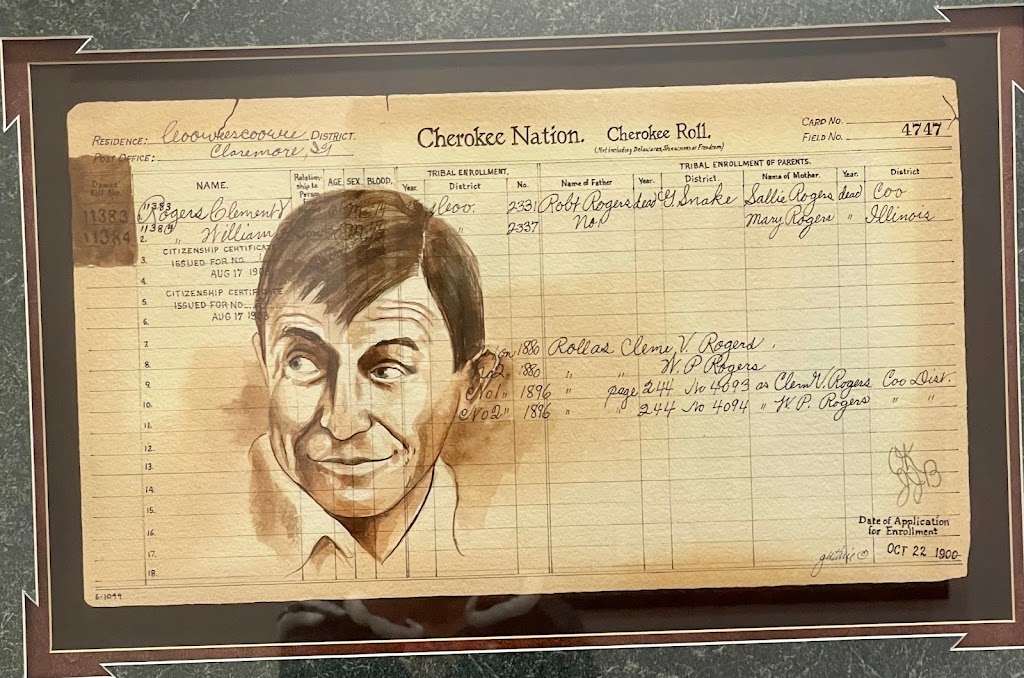 RESIDENCE: Coowescoowee DISTRICT.
POST OFFICE: Claremore, IT
Cherokee Nation. Cherokee Roll.
(Not Including Delawares, Shawnees or Freedmen)
CARD NO.
FIELD NO. 4747
Dawes Roll No.
NAME.
Relationship to Person
AGE
SEX
BLOOD.
TRIBAL ENROLLMENT.
Year.
District
No.
TRIBAL ENROLLMENT OF PARENTS.
Name of Father
Year.
District.
Name of Mother.
Year.
District
11383 11383 Rogers Clement V 2331 Robt Rogers dead G. Snake Sallie Rogers dead Coo
11384 11384 2. " William " 2337 No.1 Mary Rogers " Illinois
3. CITIZENSHIP CERTIFICATE
ISSUED FOR NO.
4. AUG 17
5. CITIZENSHIP CERTIFICATE
ISSUED FOR NO.
6. AUG 17
7. 1880 Roll as Clem V. Rogers
8. No2 " 1880 " " W. P. Rogers
9. No1 " 1896 " page 244 No 4093 as Clem V. Rogers Coo Dist.
10. No2 " 1896 " " 244 No 4094 " W. P. Rogers " "
11.
12.
13.
14.
15.
16.
17.
18.
Date of Application
for Enrollment
OCT 22 1900
guthrie ©
6-1044